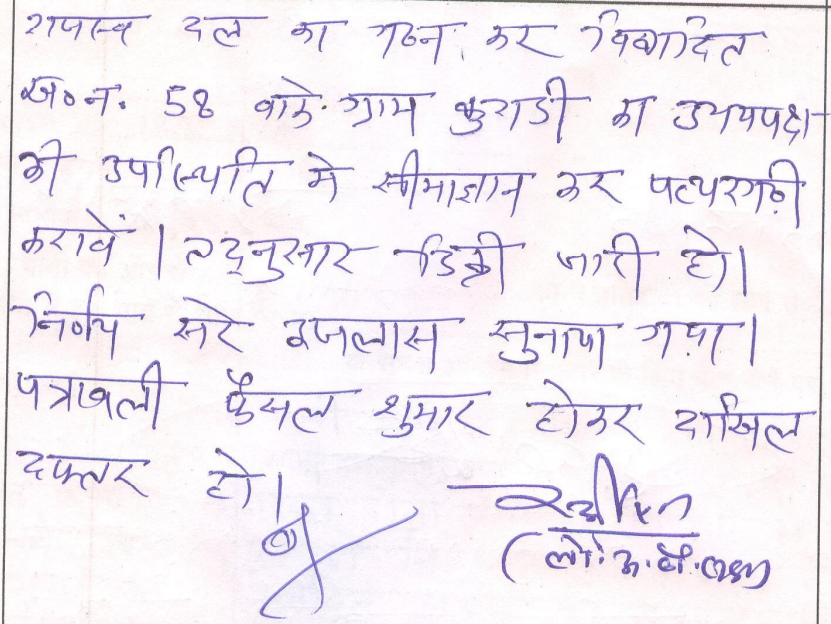 राजस्व दल का गठन कर विवादित
ख॰ न. 58 वाके ग्राम कुराडी का उभयपक्ष
की उपस्थिति में सीमाज्ञान कर पत्थरगढ़ी
करावें । तद्नुसार डिक्री जारी हो।
निर्णय सरे इजलास सुनाया गया।
पत्रावली फैसल शुमार होकर दाखिल
दफ्तर हो।